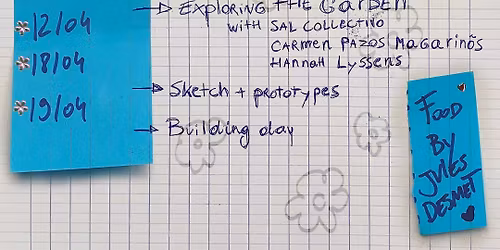 12/04
→ EXPLORING THE GARDEN
with SAL COLLECTIVO
CARMEN PAZOS MAGARINÕS
HANNAH Lyssens
18/04
→ Sketch + prototypes
19/04
→ Building day
FOOD
BY
JULES
DESMET